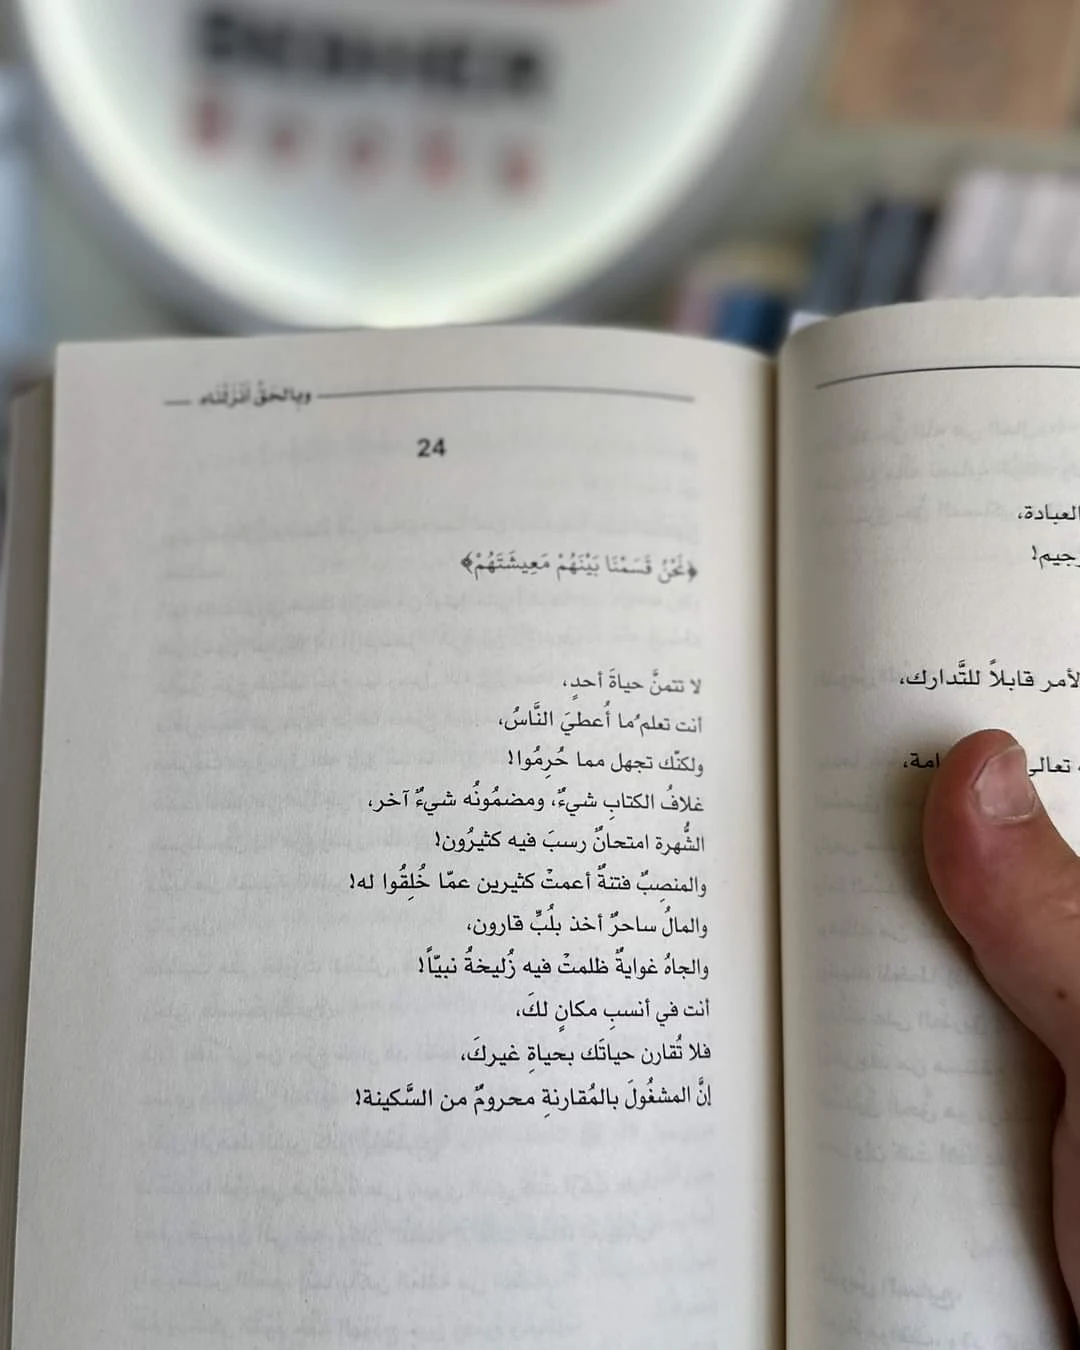 وبالحَقِّ أَنزَلْنَاه
24
﴿نَحْنُ قَسَمْنَا بَيْنَهُمْ مَعِيشَتَهُمْ﴾
لا تتمنَّ حياةَ أحدٍ،
أنت تعلم ُما أُعطيَ النَّاسُ،
ولكنّك تجهل مما حُرِمُوا!
غلافُ الكتابِ شيءٌ، ومضمُونُه شيءٌ آخر،
الشُّهرة امتحانٌ رسبَ فيه كثيرُون!
والمنصِبٌ فتنةٌ أعمتْ كثيرين عمّا خُلِقُوا له!
والمالُ ساحرٌ أخذ بلُبِّ قارون،
والجاهُ غوايةٌ ظلمتْ فيه زُليخةُ نبيّاً!
أنت في أنسبِ مكانٍ لكَ،
فلا تُقارن حياتَك بحياةِ غيركَ،
إنَّ المشغُولَ بالمُقارنةِ محرومٌ من السَّكينة!
العبادة،
رجيم!
لأمر قابلاً للتَّدارك،
تعالى امة،